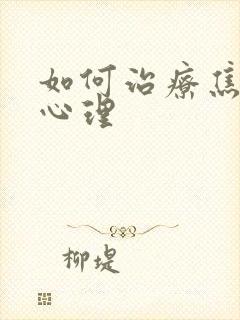 如何治疗焦
心理
柳堤